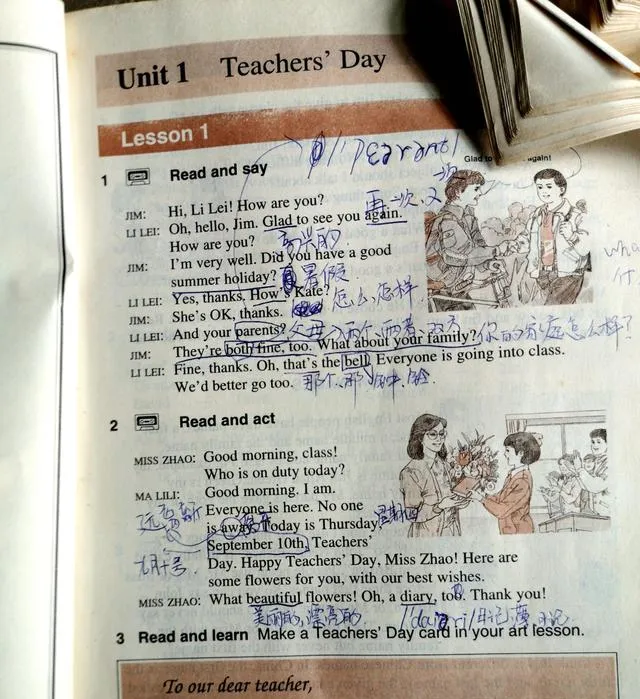 Unit 1 Teachers' Day
Lesson 1
Glad to again!
1 Read and say
再一次,又一次
JIM: Hi, Li Lei! How are you?
LI LEI: Oh, hello, Jim. Glad to see you again.
How are you? 高兴的
JIM: I'm very well. Did you have a good
summer holiday? 暑假
LI LEI: Yes, thanks. How's Kate? 怎么,怎样
JIM: She's OK, thanks.
LI LEI: And your parents? 父母 两个,两者,双方 你的家庭怎么样?
JIM: They're both fine, too. What about your family?
LI LEI: Fine, thanks. Oh, that's the bell. Everyone is going into class.
We'd better go too. 那个,那
2 Read and act
MISS ZHAO: Good morning, class!
Who is on duty today?
MA LILI: Good morning. I am.
Everyone is here. No one
is away. Today is Thursday, 星期四
September 10th, Teachers'
九月十号
Day. Happy Teachers' Day, Miss Zhao! Here are
some flowers for you, with our best wishes.
MISS ZHAO: What beautiful flowers! Oh, a diary, too. Thank you!
美丽的,漂亮的 日记簿,日记
3 Read and learn Make a Teachers' Day card in your art lesson.
To our dear teacher,